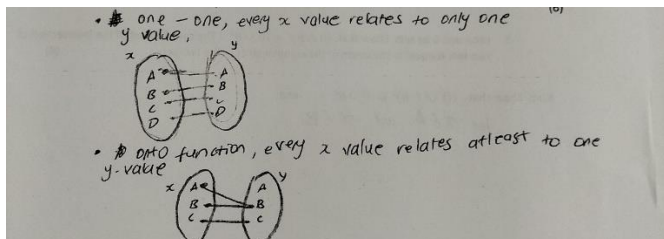 • one - one, every x value relates to only one
y value,
x y
A A
B B
C C
D D
• onto function, every x value relates atleast to one
y-value
x y
A A
B B
C C